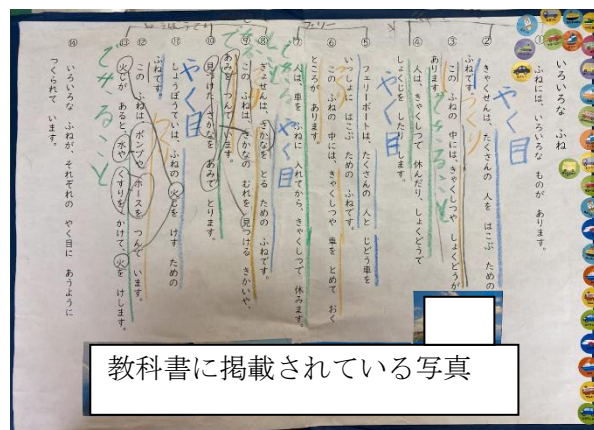 いろいろな ふね
① ふねには、いろいろな ものが あります。
② きゃくせんは、たくさんの 人を はこぶ ための
ふねです。
やく目
③ この ふねの 中には、きゃくしつや しょくどうが
あります。
つくり
④ 人は、きゃくしつで 休んだり、しょくどうで
しょくじを したり します。
できること
⑤ フェリーボートは、たくさんの 人と じどう車を
いっしょに はこぶ ための ふねです。
やく目
⑥ この ふねの 中には、きゃくしつや 車を とめて おく
ところが あります。
⑦ 人は、車を ふねに 入れてから、きゃくしつで 休みます。
できること
⑧ ぎょせんは、さかなを とる ための ふねです。
やく目
⑨ この ふねは、さかなの むれを 見つける きかいや、
あみを つんで います。
⑩ 見つけた さかなを あみで とります。
⑪ しょうぼうていは、ふねの 火じを けす ための
ふねです。
やく目
⑫ この ふねは、ポンプや ホースを つんで います。
⑬ 火じが あると、水や くすりを かけて、火を けします。
できること
⑭ いろいろな ふねが、それぞれの やく目に あうように
つくられて います。
フェリー
教科書に掲載されている写真